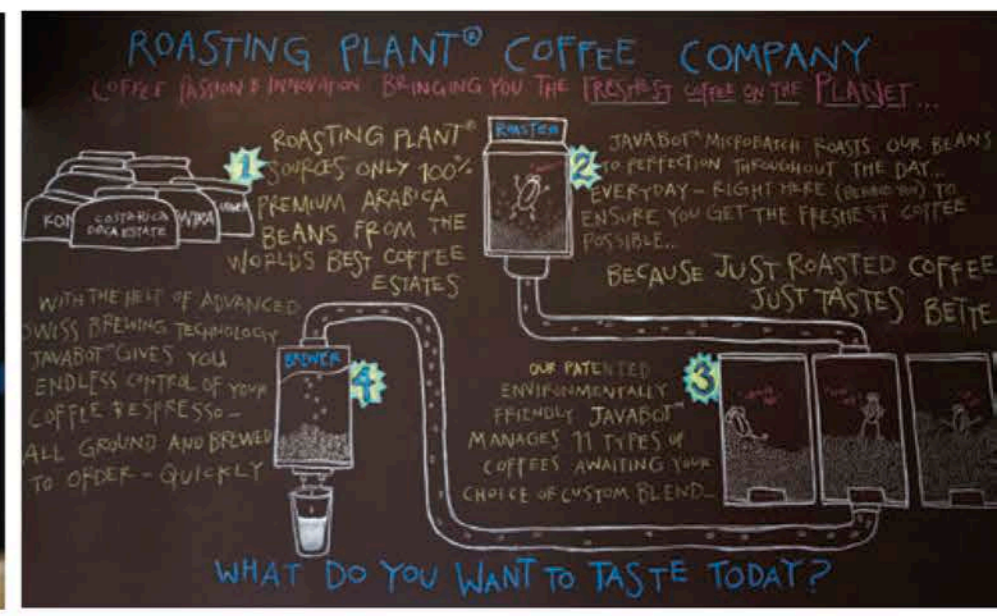 ROASTING PLANT® COFFEE COMPANY
COFFEE PASSION & INNOVATION BRINGING YOU THE FRESHEST COFFEE ON THE PLANET...
1
ROASTING PLANT®
SOURCES ONLY 100%
PREMIUM ARABICA
BEANS FROM THE
WORLDS BEST COFFEE
ESTATES
KON
COSTA RICA
DOCA ESTATE
ROASTER
2
JAVABOT™ MICROBATCH ROASTS OUR BEANS
TO PERFECTION THROUGHOUT THE DAY...
EVERYDAY - RIGHT HERE (BEHIND YOU) TO
ENSURE YOU GET THE FRESHEST COFFEE
POSSIBLE...
BECAUSE JUST ROASTED COFFEE
JUST TASTES BETTE
3
OUR PATENTED
ENVIRONMENTALLY
FRIENDLY JAVABOT™
MANAGES 11 TYPES OF
COFFEES AWAITING YOUR
CHOICE OF CUSTOM BLEND...
WITH THE HELP OF ADVANCED
SWISS BREWING TECHNOLOGY
JAVABOT™ GIVES YOU
ENDLESS CONTROL OF YOUR
COFFEE & ESPRESSO -
ALL GROUND AND BREWED
TO ORDER - QUICKLY
BREWER
4
WHAT DO YOU WANT TO TASTE TODAY?